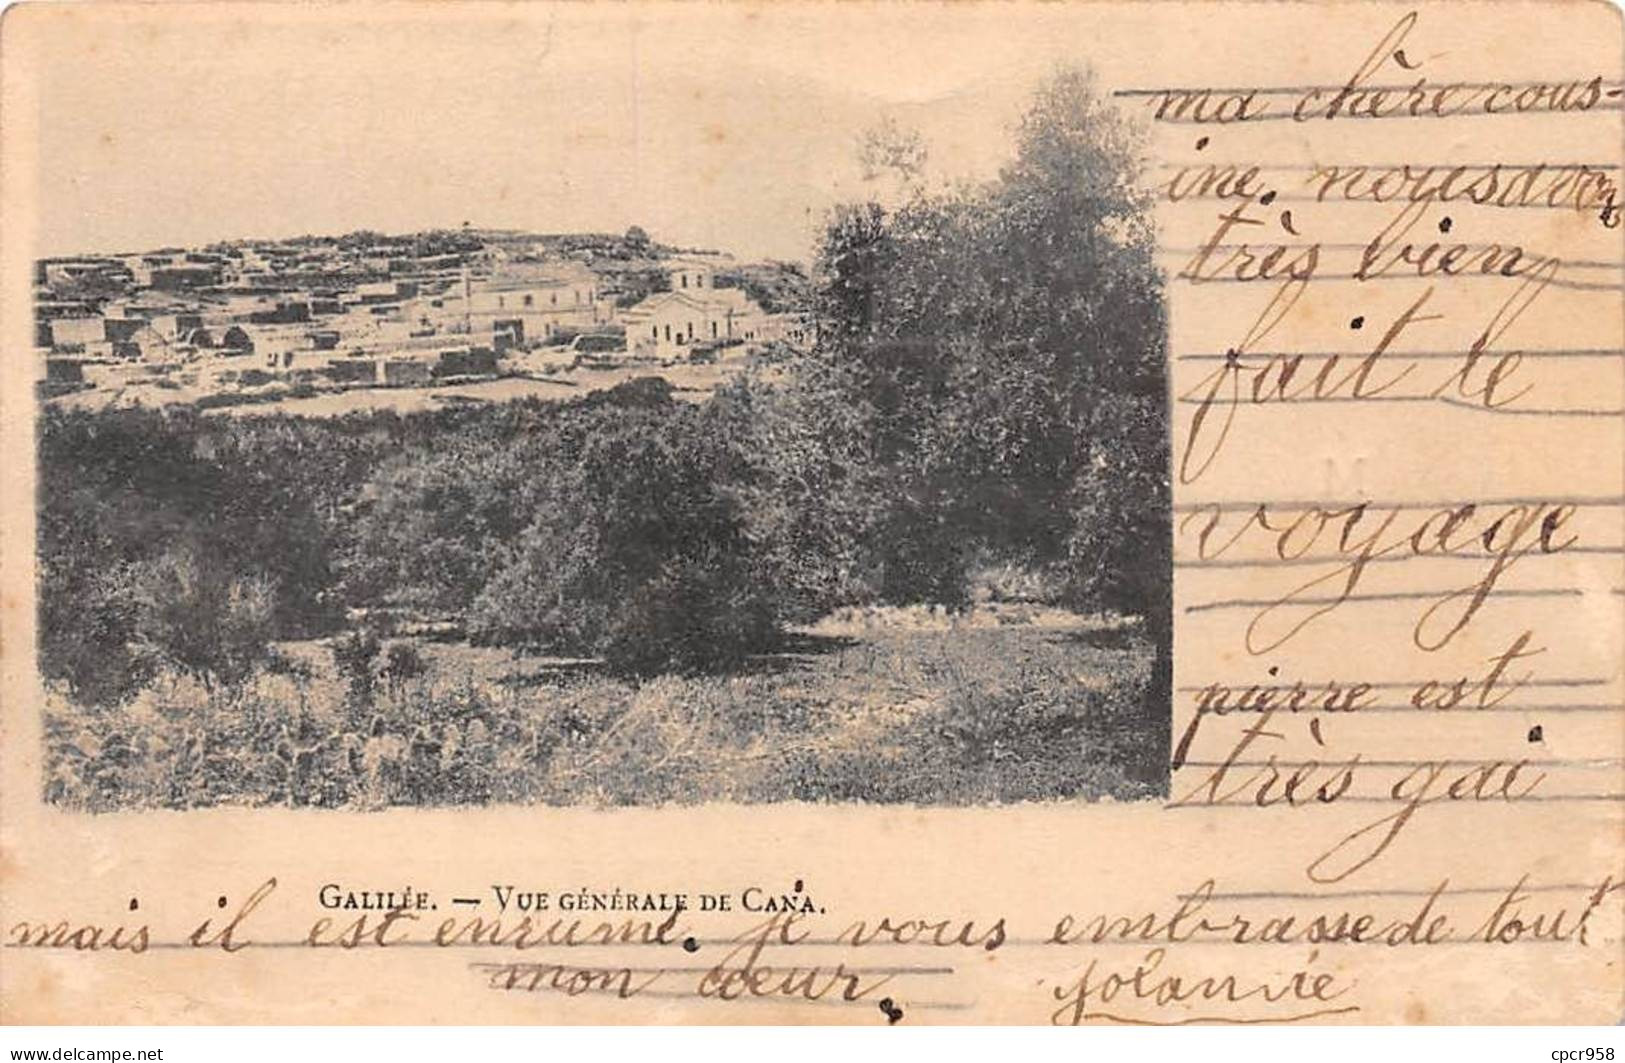 ma chère cous-
ine. nous avons
très bien
fait le
voyage
pierre est
très gai
GALILÉE. — VUE GÉNÉRALE DE CANA.
mais il est enrumé. je vous embrasse de tout
mon cœur.
yolannie
cpcr958